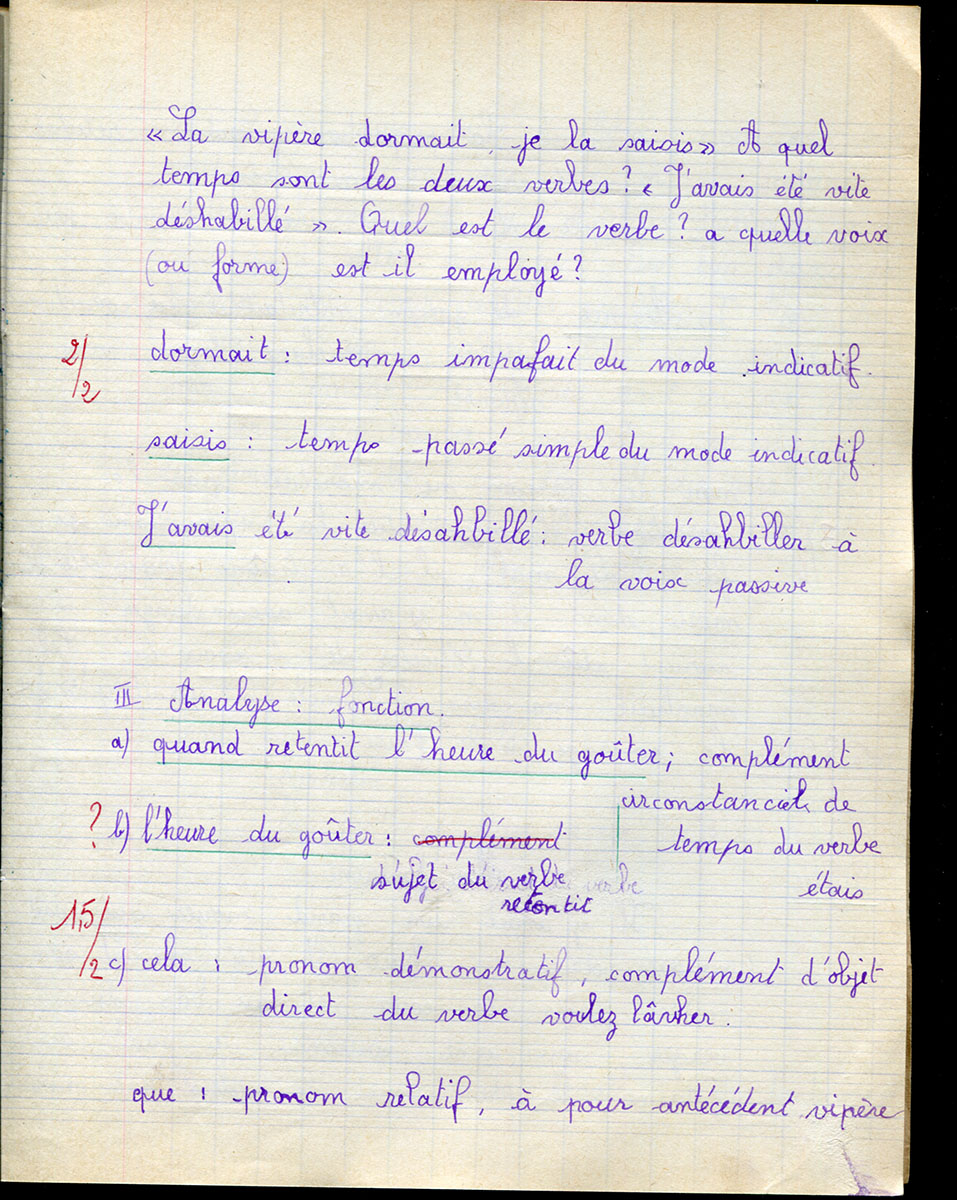 « La vipère dormait, je la saisis » A quel
temps sont les deux verbes ? « J'avais été vite
déshabillé ». Quel est le verbe ? a quelle voix
(ou forme) est il employé ?
2/2 dormait : temps impafait du mode indicatif.
saisis : temps passé simple du mode indicatif.
J'avais été vite désahbillé : verbe désahbiller à
la voix passive
III Analyse : fonction.
a) quand retentit l'heure du goûter ; complément
circonstanciel de
temps du verbe
étais
? b) l'heure du goûter : complément
sujet du verbe verbe
retentit
1,5/2
c) cela : pronom démonstratif, complément d'objet
direct du verbe voulez
que : pronom relatif, à pour antécédent vipère